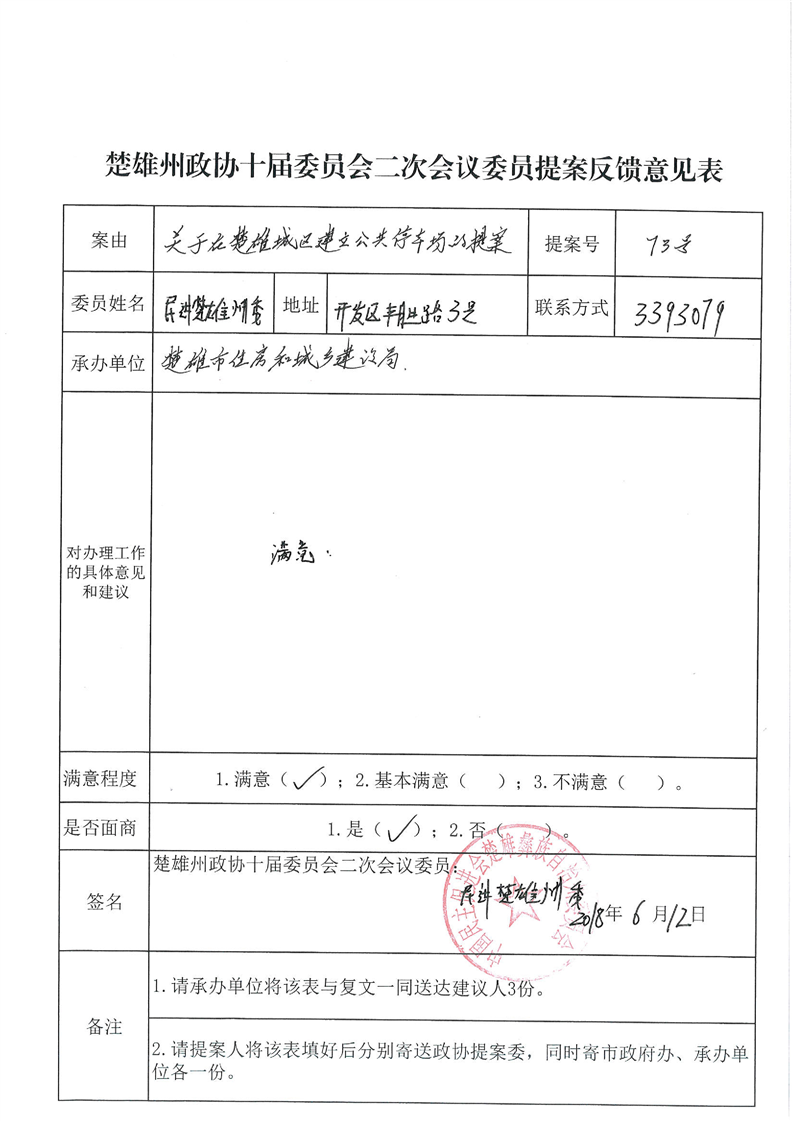 楚雄州政协十届委员会二次会议委员提案反馈意见表
案由 关于在楚雄城区建立公共停车场的提案 提案号 73号
委员姓名 民进楚雄州委 地址 开发区丰胜路3号 联系方式 3393079
承办单位 楚雄市住房和城乡建设局.
对办理工作
的具体意见
和建议
满意.
满意程度 1.满意（✓）；2.基本满意（ ）；3.不满意（ ）。
是否面商 1.是（✓）；2.否（ ）。
签名 楚雄州政协十届委员会二次会议委员：
民进楚雄州委
2018年6月12日
中国民主促进会楚雄彝族自治州委员会
备注
1.请承办单位将该表与复文一同送达建议人3份。
2.请提案人将该表填好后分别寄送政协提案委，同时寄市政府办、承办单
位各一份。